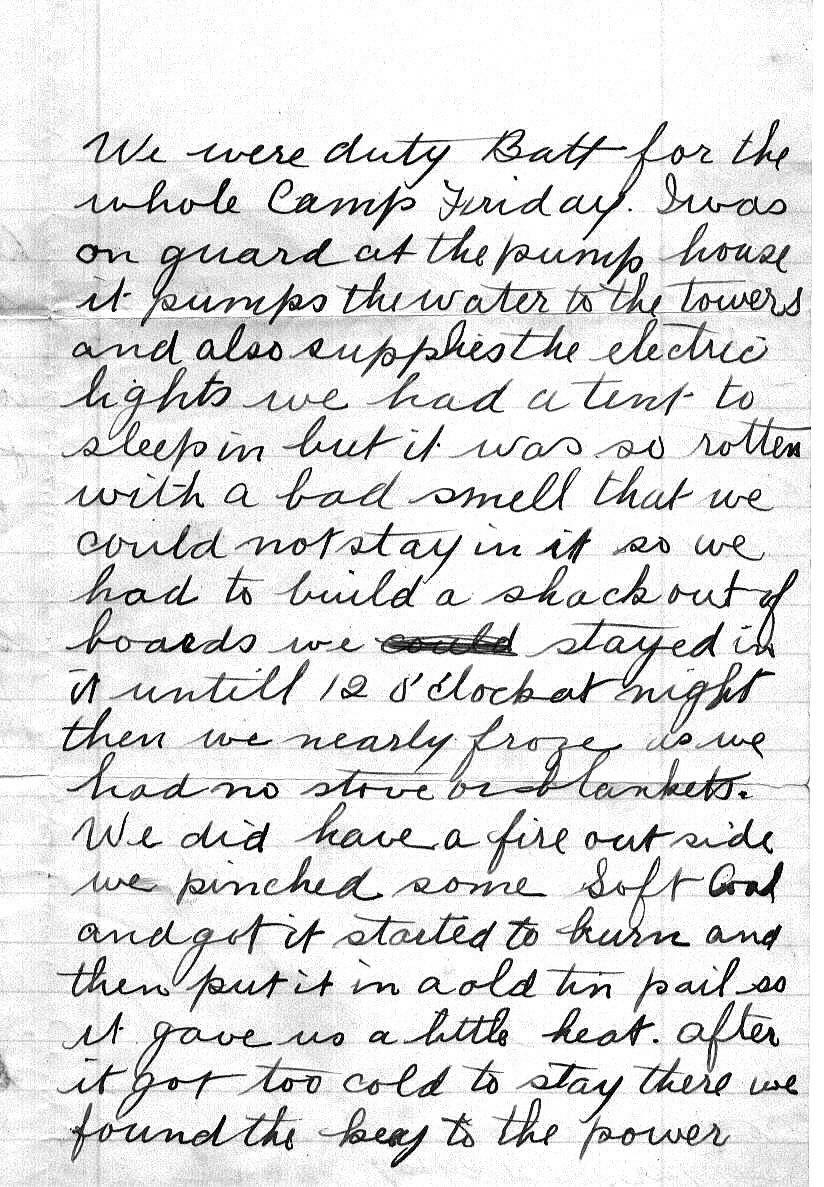 We were duty Batt for the
whole Camp Friday. I was
on guard at the pump house
it pumps the water to the towers
and also supplies the electric
lights we had a tent to
sleep in but it was so rotten
with a bad smell that we
could not stay in it so we
had to build a shack out of
boards we could stayed in
it untill 12 o'clock at night
then we nearly froze as we
had no stove or blankets.
We did have a fire out side
we pinched some Soft Coal
and got it started to burn and
then put it in a old tin pail so
it gave us a little heat. after
it got too cold to stay there we
found the key to the power